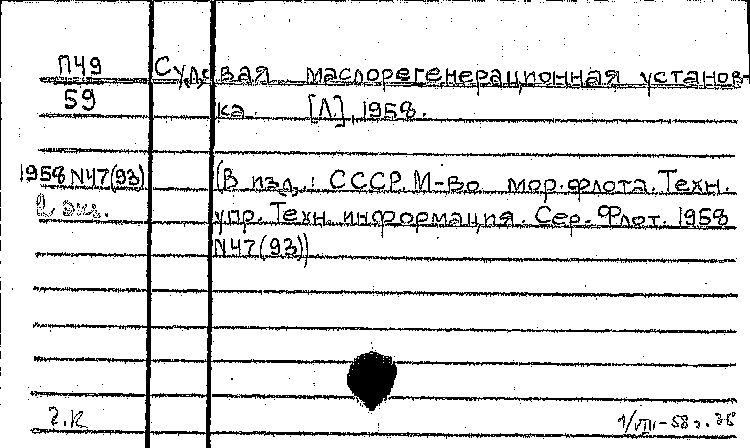 П49 Судовая маслорегенерационная установ-
59 ка. [Л], 1958.
1958 N47(93) (В изд.: СССР. М-во мор. флота. Техн.
2 экз. упр. Техн. информация. Сер. Флот. 1958
N47(93))
г.к 1/VIII-58г.